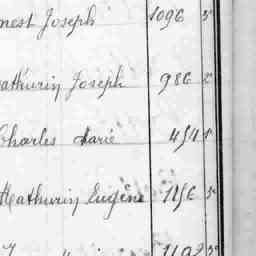 nest Joseph 1096 5
athurin Joseph 986
Charles Marie 454
Mathurin Eugène 1156 5
1102 5